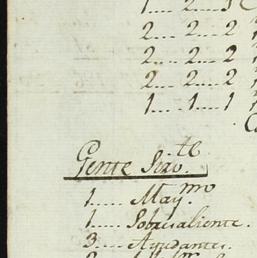 1.... 2.... 3
2.... 2.... 2
2.... 2.... 2
2.... 2.... 2
1.... 1.... 1
Gente
1.... May.mo
1.... Sobresaliente.
3.... Ayudantes.